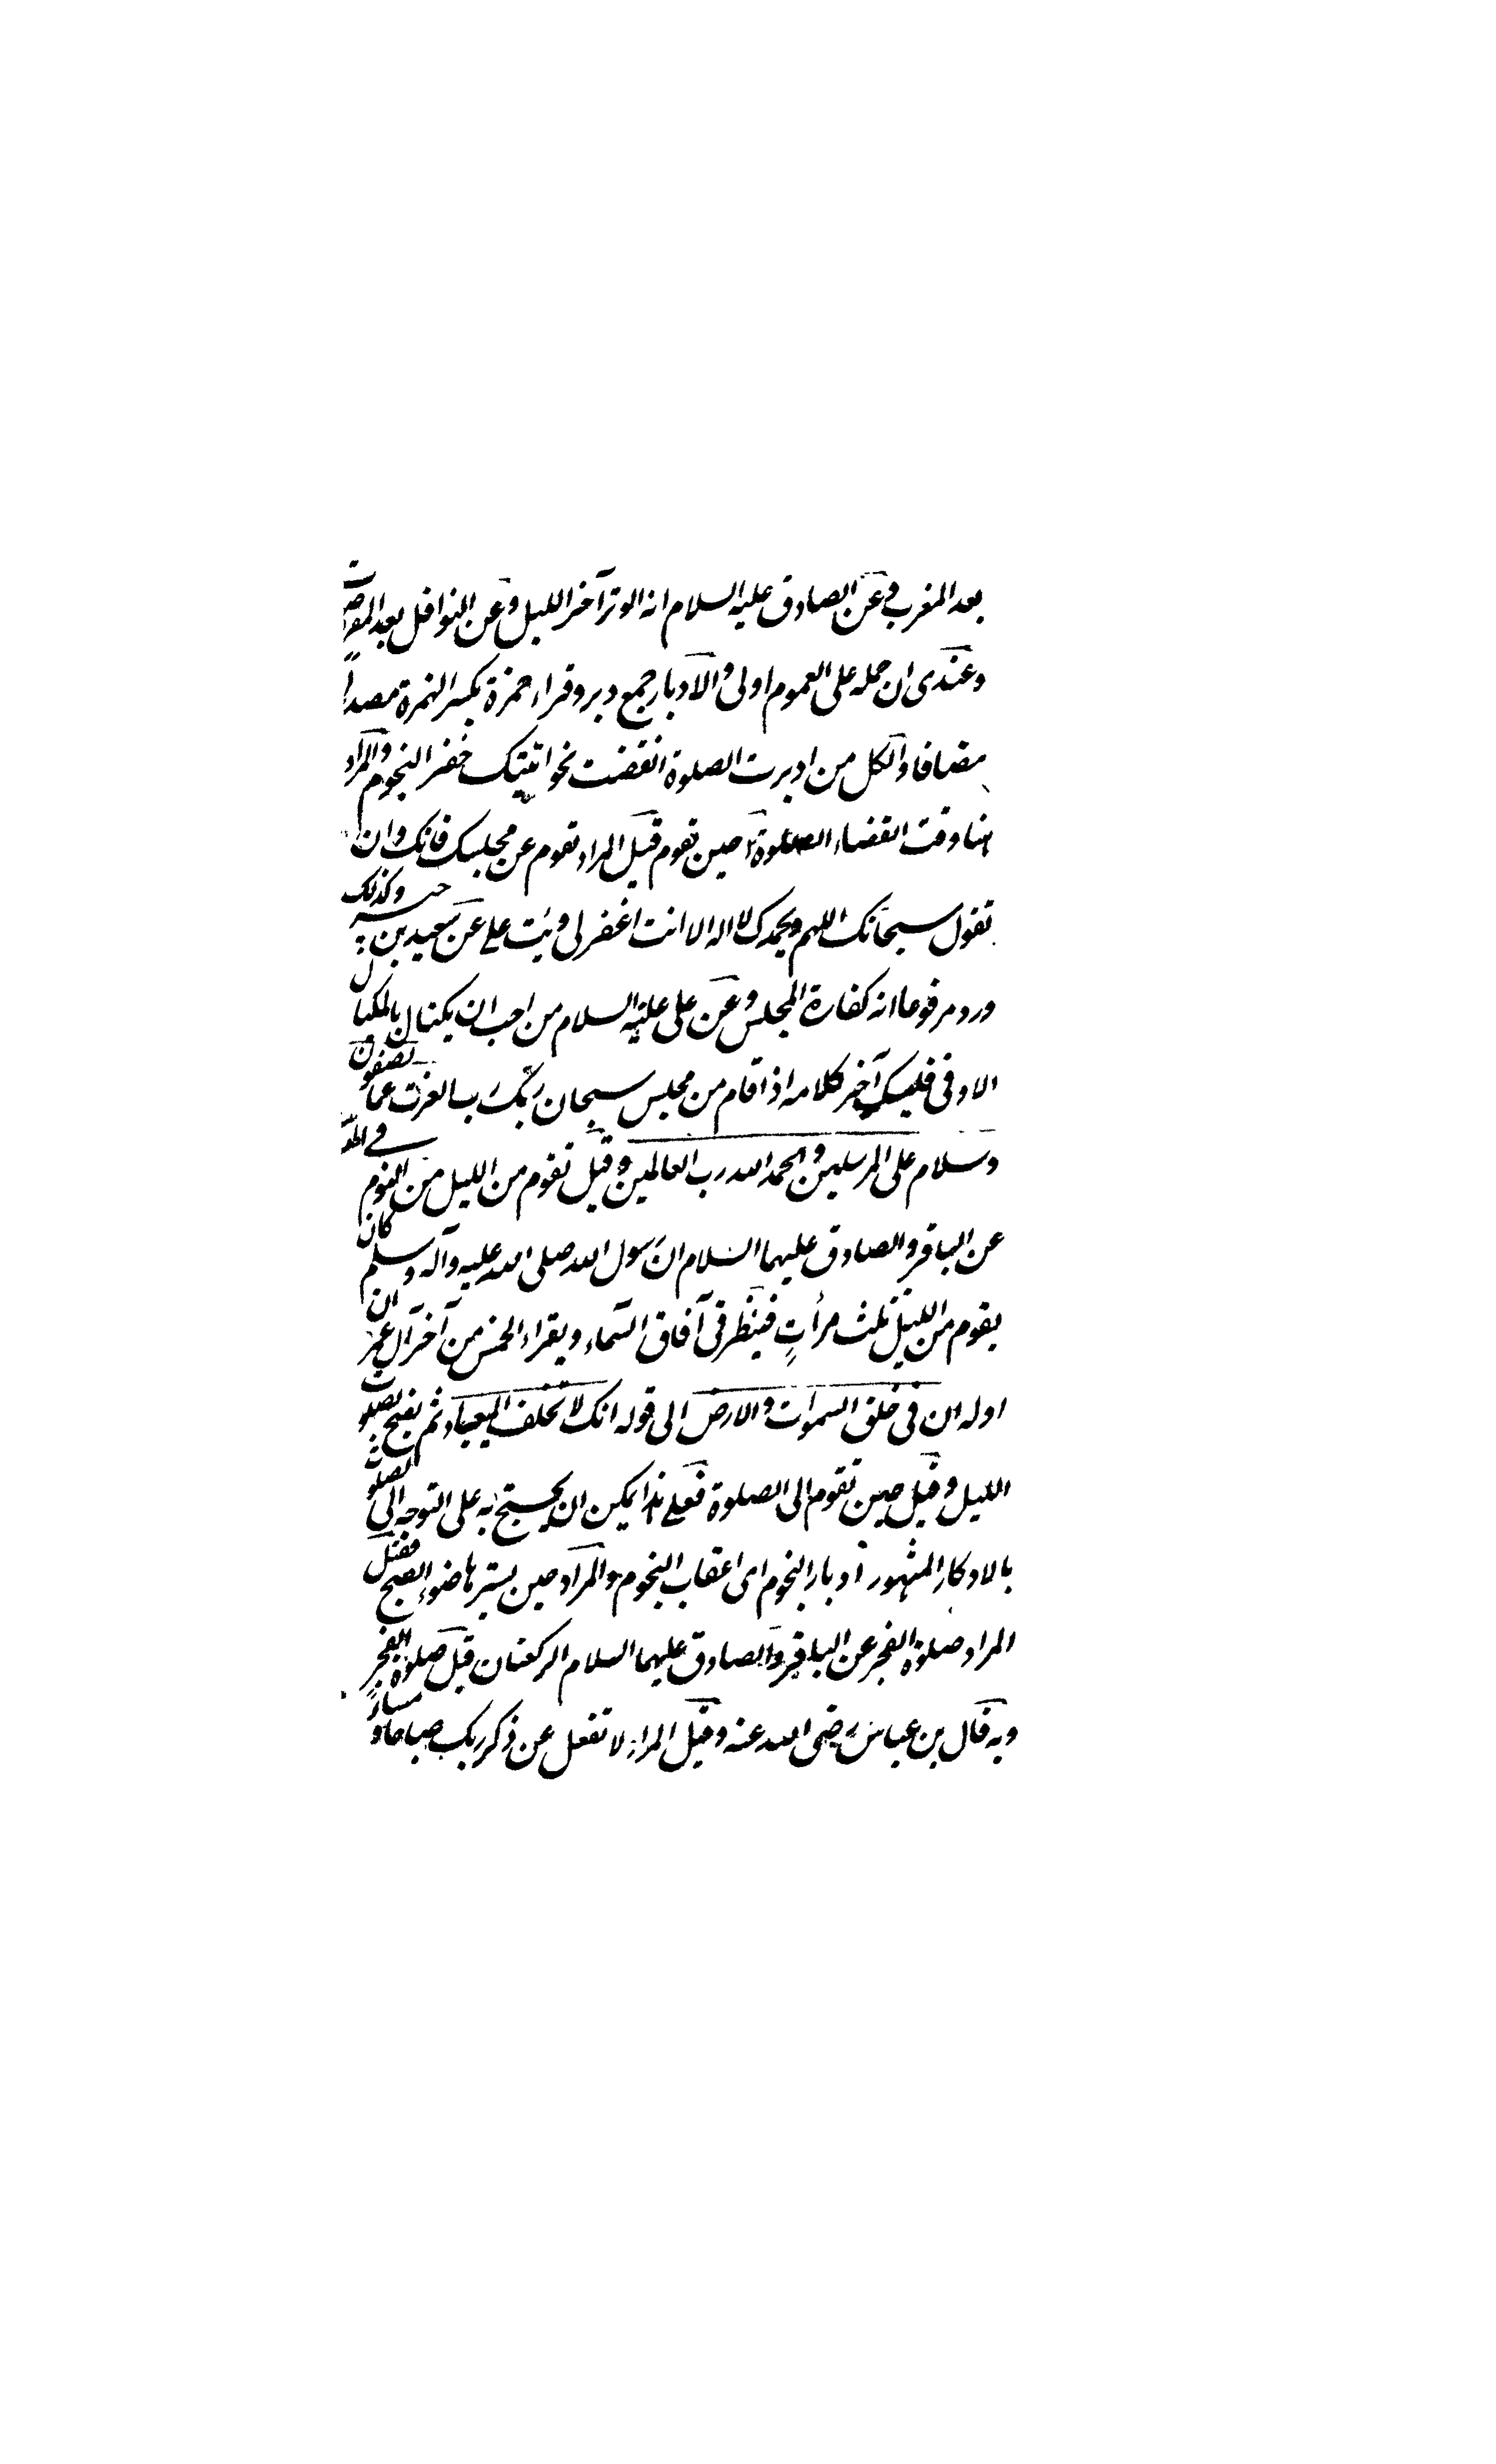 بعد المغرب وعن الصادق عليه السلام انه الوتر آخر الليل وعن النوافل بعد المفروضات
وعندى ان حمله على العموم اولى والادبار جمع دبر وقراء حمزة بكسر الهمزة مصدراً
مضافا والكل من ادبرت الصلوة انقضت نحو اتيتك خفر النجوم والمراد
هنا وقت انقضاء الصلوة حين تقوم قيل المراد تقوم عن مجلسك فانك وان
تقول سبحانك اللهم وبحمدك لا اله الا انت اغفر لى وتب على عن سعيد بن جبير وكذلك
ورد مرفوعا انه كفارة المجلس وعن على عليه السلام من احب ان يكتال بالمكيال
الاوفى فليكن آخر كلامه اذا قام من مجلس سبحان ربك رب العزت عما تصفون
وسلام على المرسلين والحمد لله رب العالمين وقيل تقوم من الليل من النوم في
عن الباقر والصادق عليهما السلام ان رسول الله صلى الله عليه وآله وسلم كان
يقوم من الليل ثلث مرأتٍ فينظر فى آفاق السماء ويقراء الخمس من آخر آل عمران
اوله ان فى خلق السموات والارض الى قوله انك لا تخلف الميعاد ثم يفتح بصلوت
الليل وقيل حين تقوم الى الصلوة فعلى هذا يمكن ان يحتج به على التوجه الى الصلوت
بالادكار المشهور ادبار النجوم اى اعقاب النجوم والمراد حين يسترها ضوء الصبح فقيل
المراد صلوة الفجر عن الباقر والصادق عليهما السلام الركعتان قبل صلوة الفجر
وبه قال بن عباس رضى الله عنه وقيل المراد لا تغفل عن ذكر ربك صباحا ومساءً